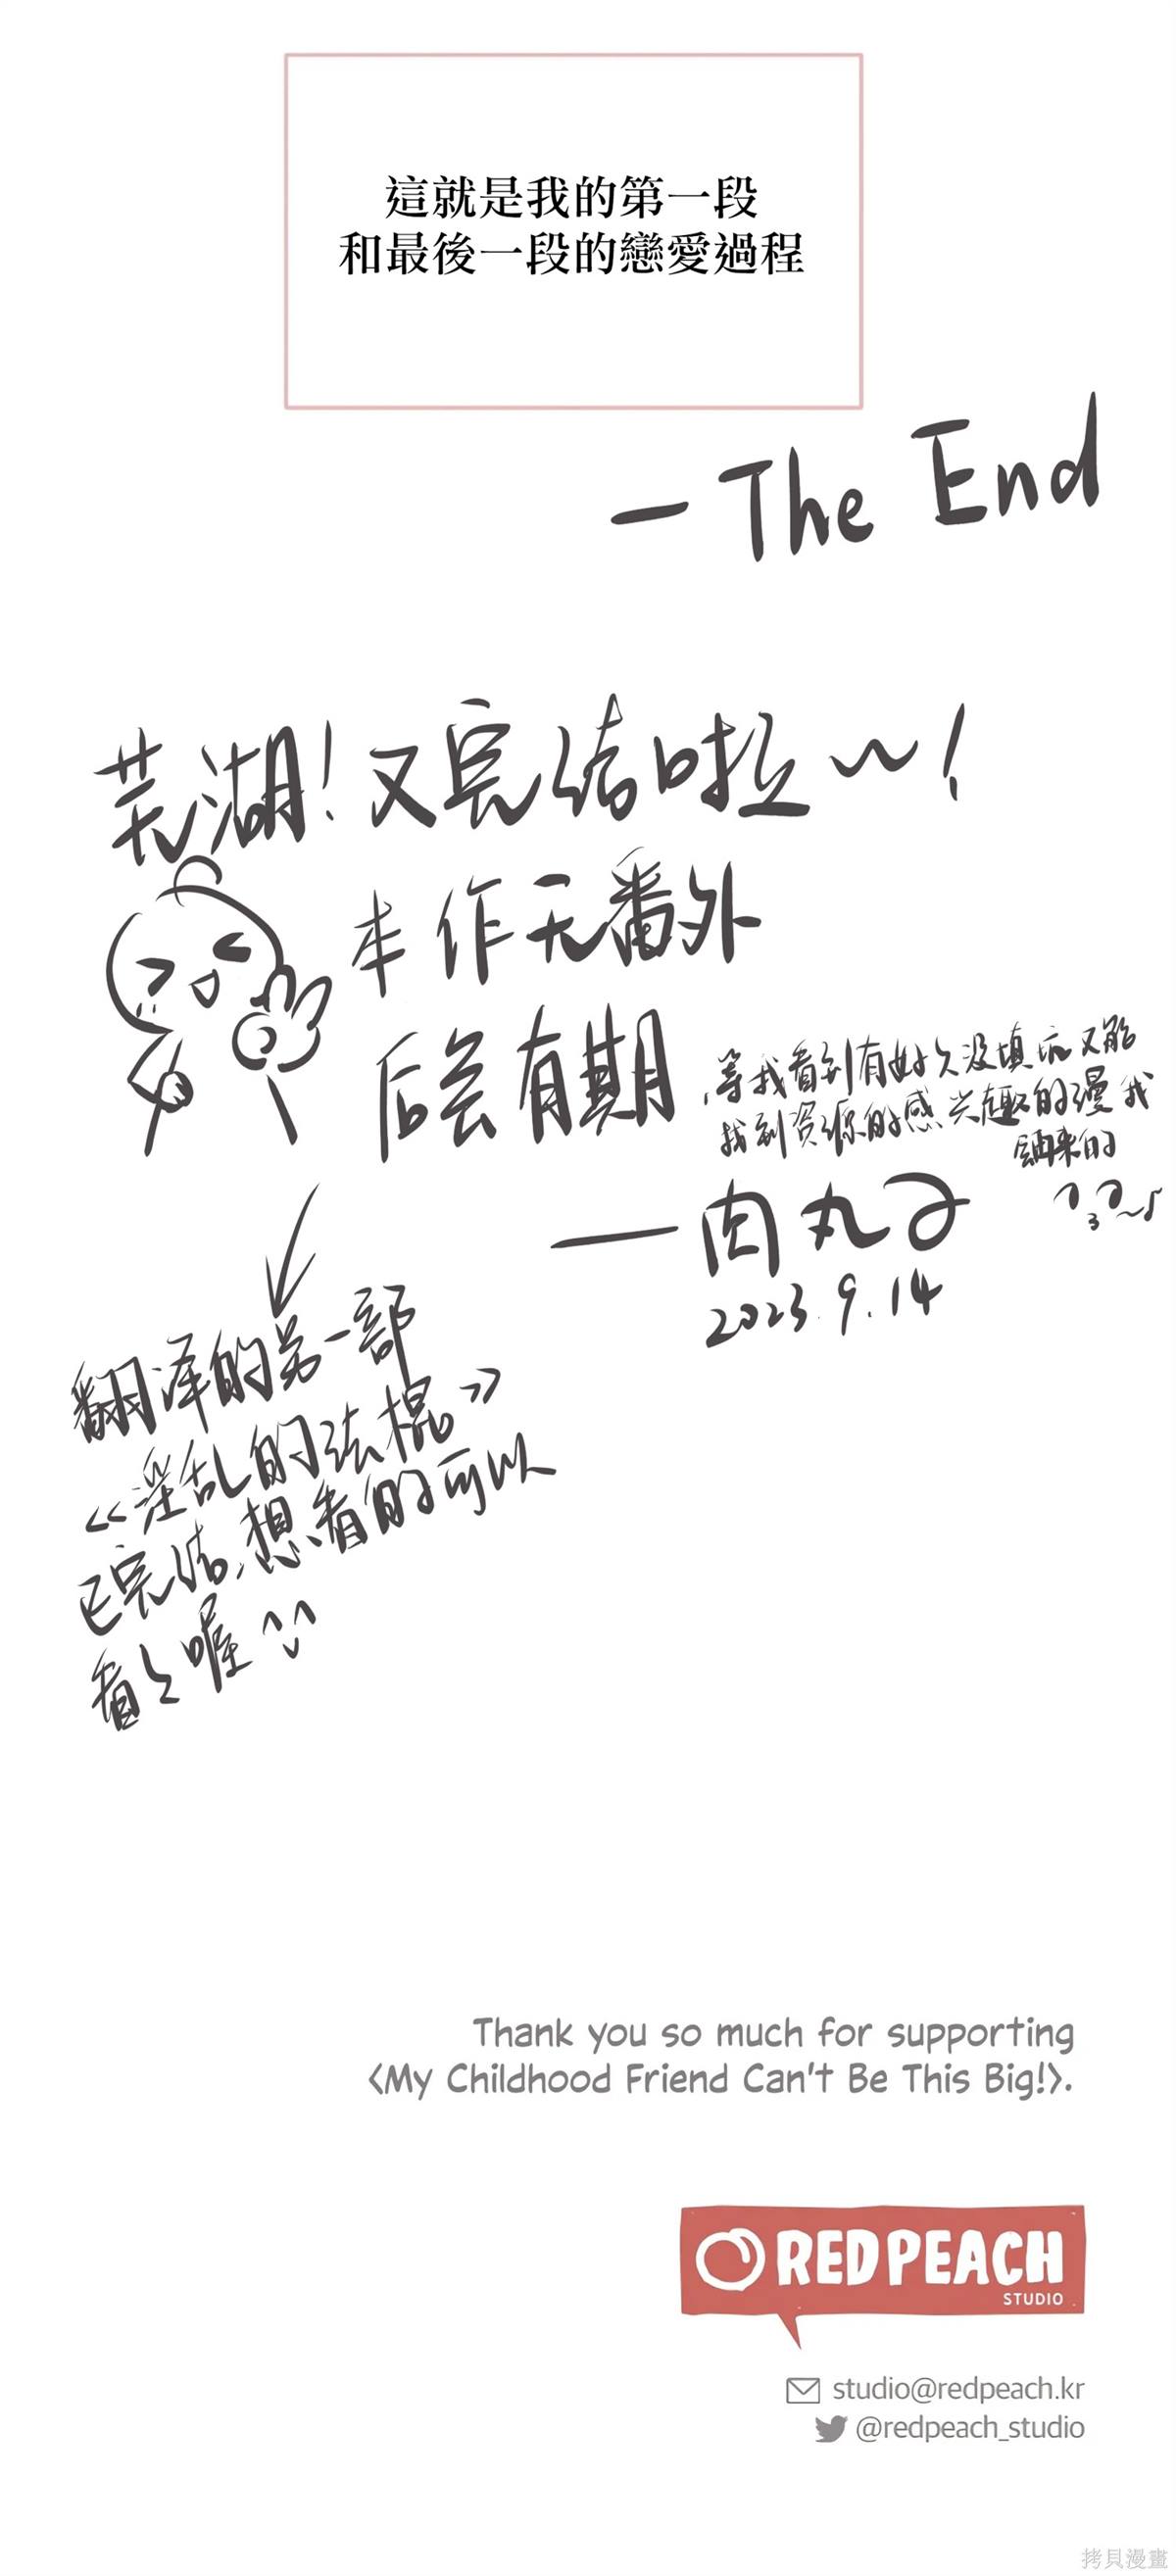 這就是我的第一段
和最後一段的戀愛過程
— The End
芜湖！又完结啦～！
本作无番外
后会有期
等我看到有好久没填坑又能
找到资源的感兴趣的漫我
会再来的
——肉丸子
2023.9.14
翻译的另一部
《淫乱的法棍》
已完结，想看的可以
看看喔
Thank you so much for supporting
<My Childhood Friend Can't Be This Big!>.
RED PEACH
STUDIO
studio@redpeach.kr
@redpeach_studio
拷貝漫畫